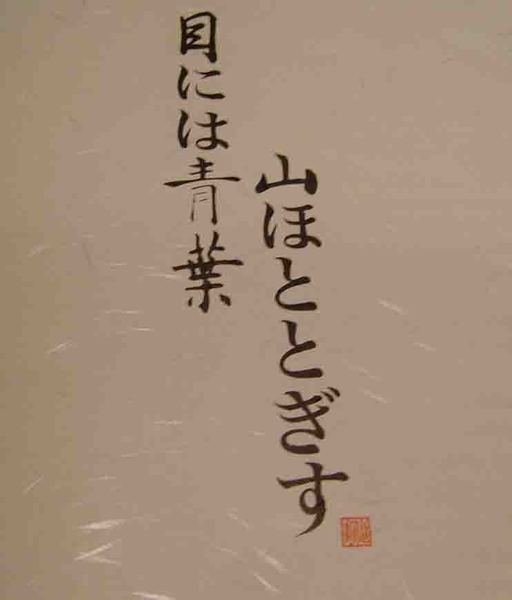 目には青葉
山ほととぎす